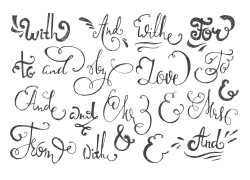 with And Withe For
to and by Love To
And and Mr & Mrs
From with & & And